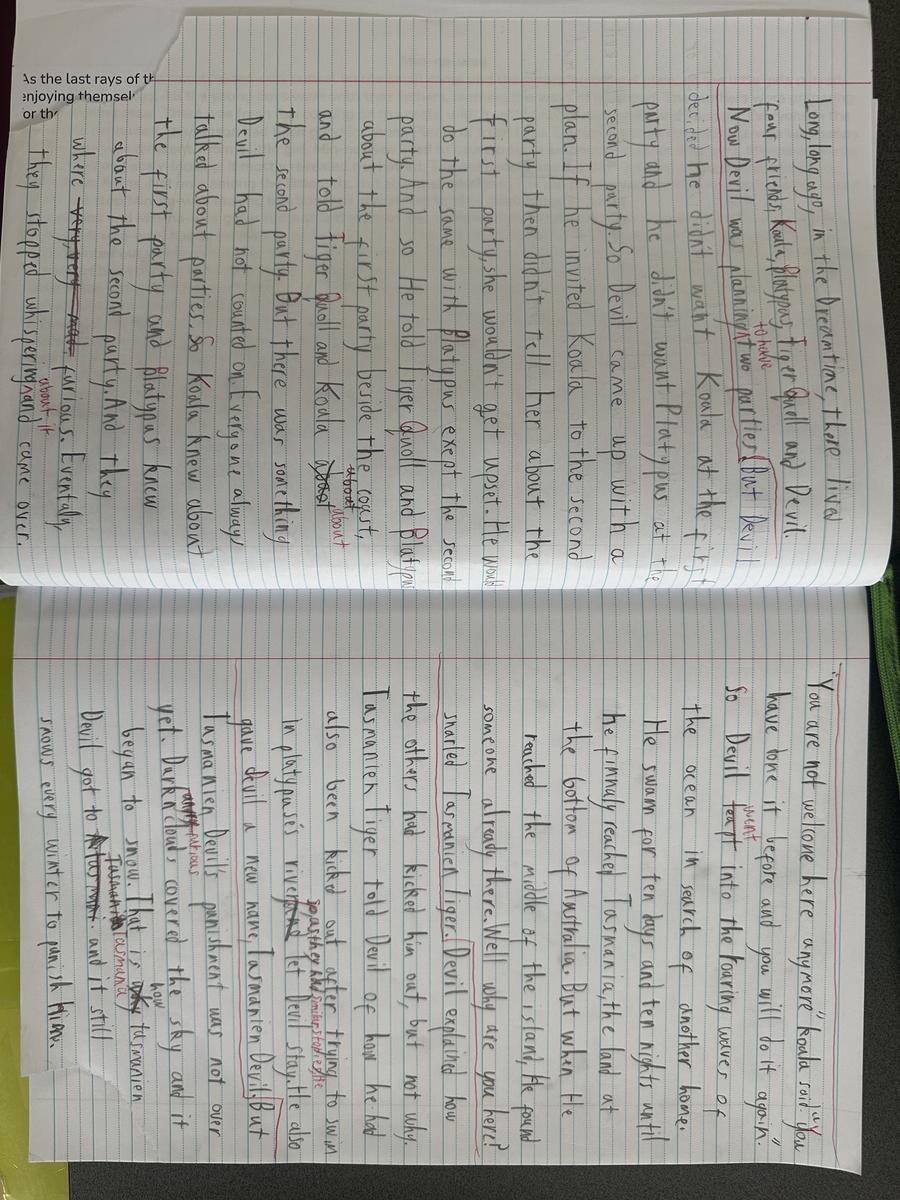 As the last rays of th
enjoying themsel
or the
Long, long ago, in the Dreamtime, there lived
four friends, Koala, Platypus, Tiger Quoll and Devil.
Now Devil was planning to have two parties. But Devil
decided he didn't want Koala at the first
party and he didn't want Platypus at the
second party. So Devil came up with a
plan. If he invited Koala to the second
party then didn't tell her about the
first party, she wouldn't get upset. He would
do the same with Platypus exept the second
party. And so He told Tiger Quoll and Platypus
about the first party beside the coast,
and told Tiger Quoll and Koala about about
the second party. But there was something
Devil had not counted on. Everyone always
talked about parties. So Koala knew about
the first party and Platypus knew
about the second party. And they
where very, very mad. furious. Eventaly
they stopped whispering about it and came over.
"You are not welcome here anymore" koala said. "you
have done it before and you will do it again."
So Devil leapt went into the rouring waves of
the ocean in search of another home.
He swam for ten days and ten nights until
he finnaly reached Tasmania, the land at
the bottom of Australia. But when He
reached the middle of the island, He found
someone already there. Well why are you here?
snarled Tasmanien Tiger. Devil explained how
the others had kicked him out, but not why.
Tasmanien Tiger told Devil of how he had
also been kicked out after trying to swim
in platypus's river and so as they had similar stories he let Devil stay. He also
gave devil a new name, Tasmanien Devil. But
Tasmanien Devil's punishment was not over
yet. Dark angry furious clouds covered the sky and it
began to snow. That is why how tasmanien
Devil got to Tasmania. and it still
snows every winter to punish Him.